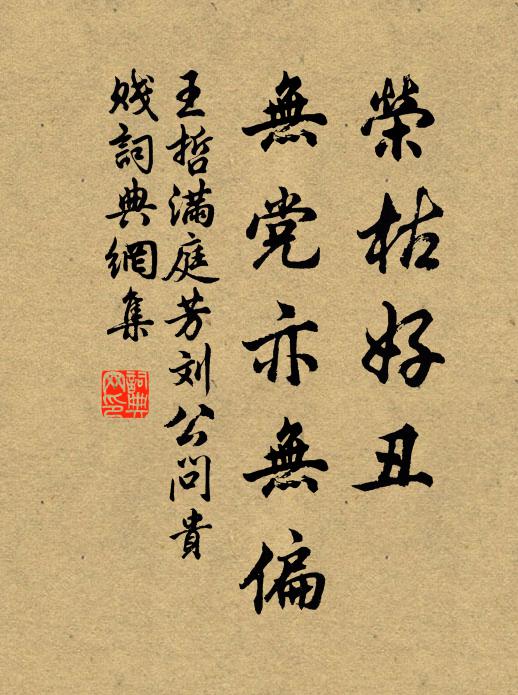 榮枯好丑
無党亦無偏
王哲满庭芳刘公問貴
贱詞典網集
詞典網印